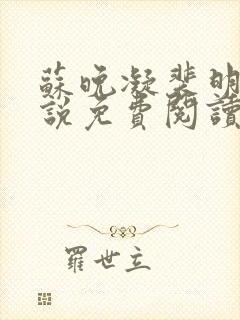 蘇晚凝裴明
說免費閱讀
羅世立